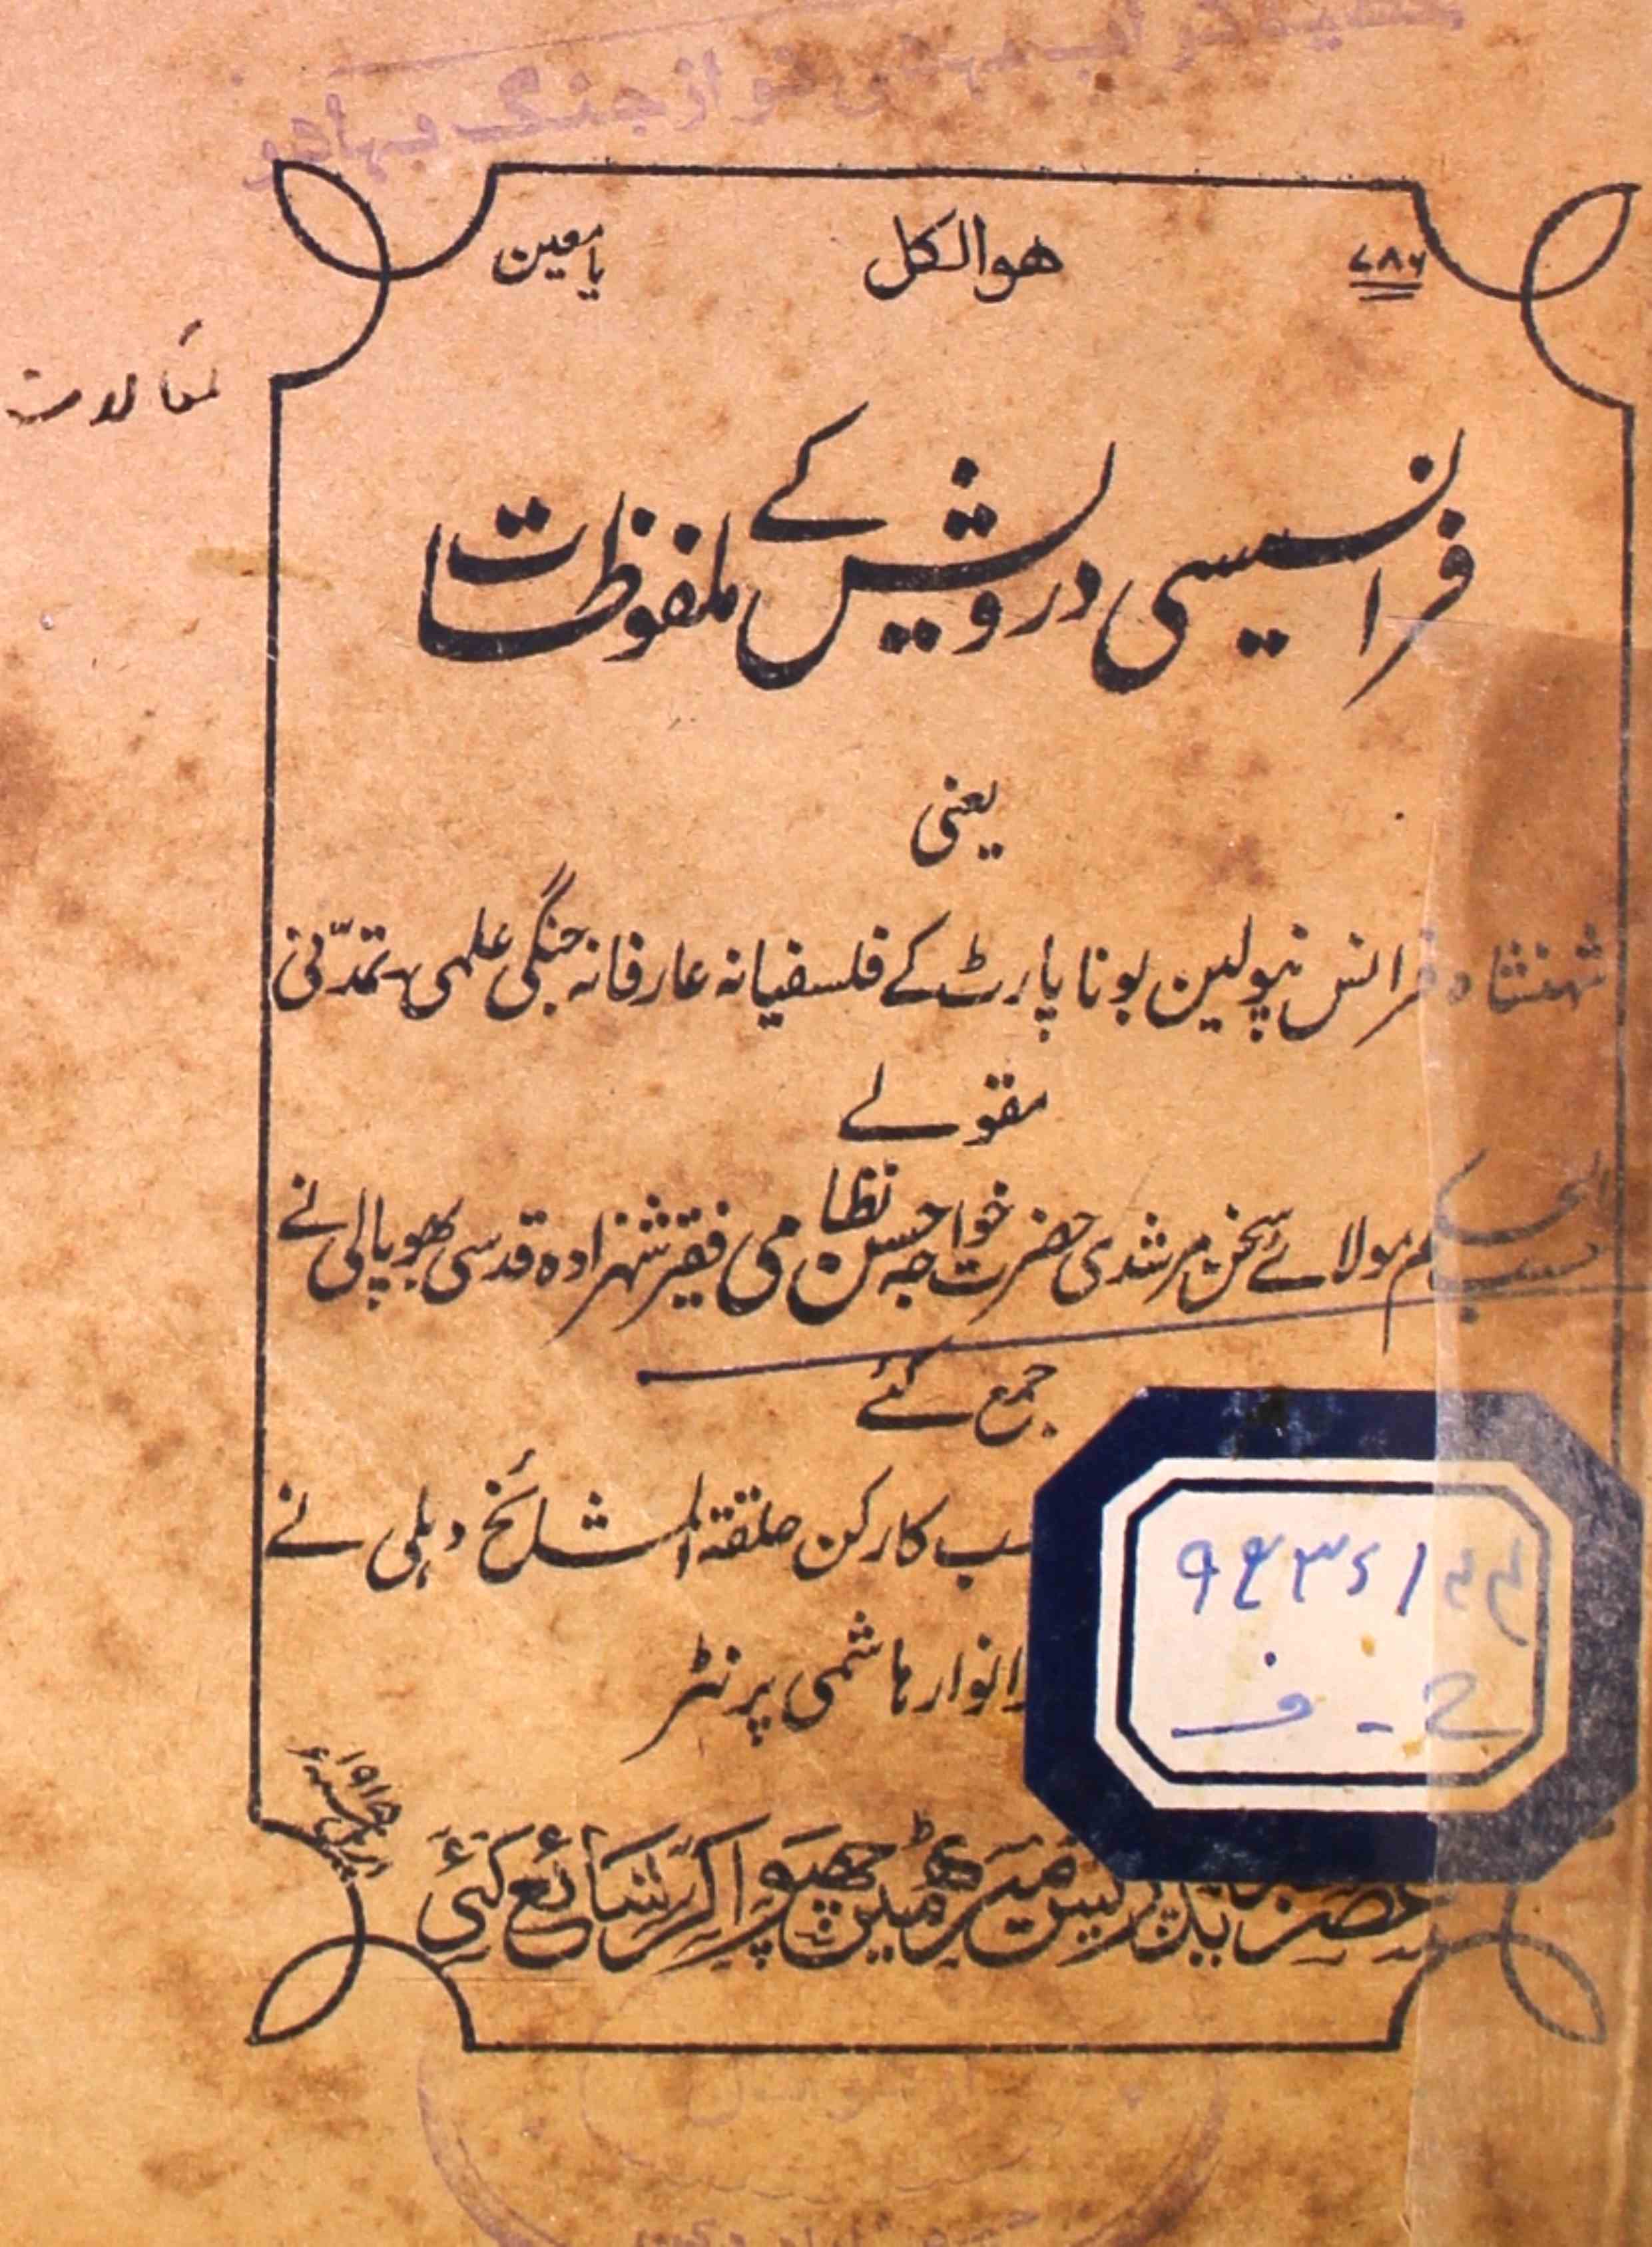 نواز جنگ بہادر
۷۸۶ ھوالکل یا معین
مقالات
فرانسیسی درویش کے ملفوظات
یعنی
شہنشاہ فرانس نپولین بونا پارٹ کے فلسفیانہ عارفانہ جنگی علمی تمدّنی
مقولے
حسب الحکم مولائے سخن مرشدی حضرت خواجہ حسن نظامی فقیر شہزادہ قدسی بھوپالی نے
جمع کئے
کارکن حلقۃ المشائخ دہلی نے
انوار ہاشمی پرنٹر
پریس میرٹھ میں چھپوا کر شائع کئے
اپریل
۹۶۳۶/
ف